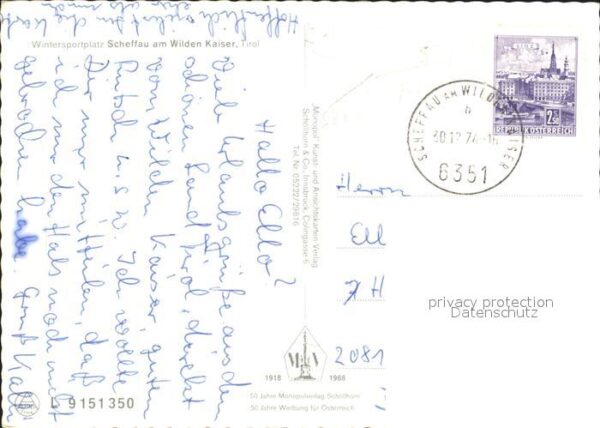 Wintersportplatz Scheffau am Wilden Kaiser, Tirol
Hallo Ella?
Viele Urlaubsgrüße aus dem
schönen Land Tirol, direkt
vom Wilden Kaiser, guten
Rutsch u.s.w. Ich wollte
Dir nur mitteilen, daß
ich mir den Hals noch nicht
gebrochen habe. Gruß
Hoffentlich
Monopol Kunst- und Ansichtskarten Verlag
Schöllhorn & Co. Innsbruck, Colingasse 6
Tel. Nr. 05222/29816
SCHEFFAU AM WILDEN KAISER
b
30.12.74-16
6351
WIEN
2.50
REPUBLIK ÖSTERREICH
Herrn
Ell
7 H
2081
privacy protection
Datenschutz
M V
1918 1968
50 Jahre Monopolverlag Schöllhorn
50 Jahre Werbung für Österreich
L 9151350